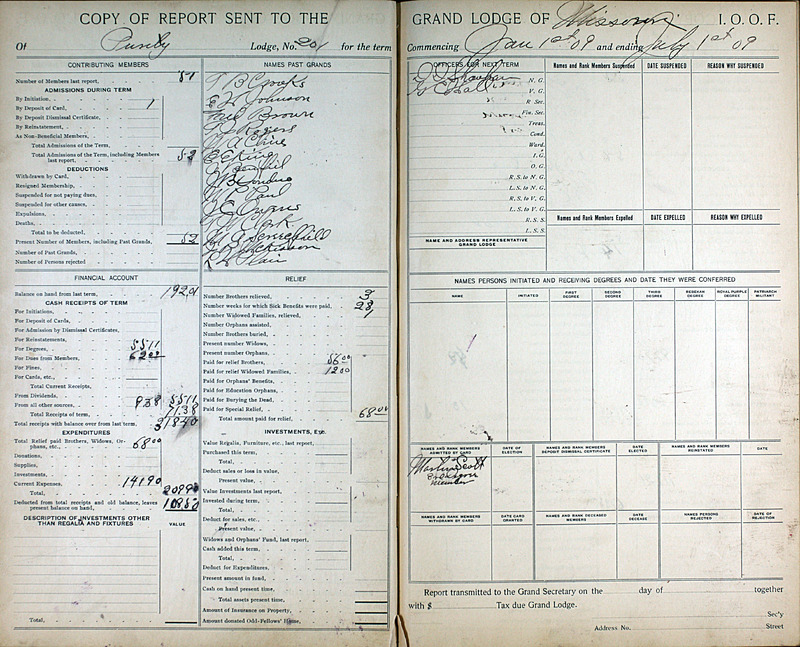 COPY OF REPORT SENT TO THE GRAND LODGE OF Missouri I. O. O. F.
Of Purdy Lodge, No. 201 for the term Commencing Jan 1st 09 and ending July 1st 09
CONTRIBUTING MEMBERS
Number of Members last report, 51
ADMISSIONS DURING TERM
By Initiation,
By Deposit of Card, 1
By Deposit Dismissal Certificate,
By Reinstatement,
As Non-Beneficial Members,
Total Admissions of the Term,
Total Admissions of the Term, including Members
last report, 52
DEDUCTIONS
Withdrawn by Card,
Resigned Membership,
Suspended for not paying dues,
Suspended for other causes,
Expulsions,
Deaths,
Total to be deducted,
Present Number of Members, including Past Grands, 52
Number of Past Grands,
Number of Persons rejected
NAMES PAST GRANDS
T B Crooks
E W Johnson
Paul Brown
Rogers
W A Cline
E C King
J E Owens
R H Hair
FINANCIAL ACCOUNT
Balance on hand from last term, 192.01
CASH RECEIPTS OF TERM
For Initiations,
For Deposit of Cards,
For Admission by Dismissal Certificates,
For Reinstatements,
For Degrees, 55 11
For Dues from Members, 62 00
For Fines,
For Cards, etc.,
Total Current Receipts,
From Dividends, 55 11
From all other sources, 9.38
Total Receipts of term, 71.38
Total receipts with balance over from last term, 318 40
EXPENDITURES
Total Relief paid Brothers, Widows, Or-
phans, etc., 68 00
Donations,
Supplies,
Investments,
Current Expenses, 141 90
Total, 209 90
Deducted from total receipts and old balance, leaves
present balance on hand, 108 50
DESCRIPTION OF INVESTMENTS OTHER
THAN REGALIA AND FIXTURES VALUE
Total,
RELIEF
Number Brothers relieved, 3
Number weeks for which Sick Benefits were paid, 28
Number Widowed Families, relieved, 1
Number Orphans assisted,
Number Brothers buried,
Present number Widows,
Present number Orphans,
Paid for relief Brothers, 56 00
Paid for relief Widowed Families, 12 00
Paid for Orphans' Benefits,
Paid for Education Orphans,
Paid for Burying the Dead,
Paid for Special Relief,
Total amount paid for relief, 68 00
INVESTMENTS, Etc.
Value Regalia, Furniture, etc., last report,
Purchased this term,
Total,
Deduct sales or loss in value,
Present value,
Value Investments last report,
Invested during term,
Total,
Deduct for sales, etc.,
Present value,
Widows and Orphans' Fund, last report,
Cash added this term,
Total,
Deduct for Expenditures,
Present amount in fund,
Cash on hand present time,
Total assets present time,
Amount of Insurance on Property,
Amount donated Odd-Fellows' Home,
OFFICERS FOR NEXT TERM
N. G.
V. G.
R. Sec.
Fin. Sec.
Treas.
Cond.
Ward.
I. G.
O. G.
R. S. to N. G.
L. S. to N. G.
R. S. to V. G.
L. S. to V. G.
R. S. S.
L. S. S.
NAME AND ADDRESS REPRESENTATIVE
GRAND LODGE
Names and Rank Members Suspended DATE SUSPENDED REASON WHY SUSPENDED
Names and Rank Members Expelled DATE EXPELLED REASON WHY EXPELLED
NAMES PERSONS INITIATED AND RECEIVING DEGREES AND DATE THEY WERE CONFERRED
NAME INITIATED FIRST DEGREE SECOND DEGREE THIRD DEGREE REBEKAH DEGREE ROYAL PURPLE DEGREE PATRIARCH MILITANT
NAMES AND RANK MEMBERS ADMITTED BY CARD DATE OF ELECTION NAMES AND RANK MEMBERS DEPOSIT DISMISSAL CERTIFICATE DATE ELECTED NAMES AND RANK MEMBERS REINSTATED DATE
Martin Scott
NAMES AND RANK MEMBERS WITHDRAWN BY CARD DATE CARD GRANTED NAMES AND RANK DECEASED MEMBERS DATE DECEASE NAMES PERSONS REJECTED DATE OF REJECTION
Report transmitted to the Grand Secretary on the day of together
with $ Tax due Grand Lodge.
Sec'y
Address No. Street